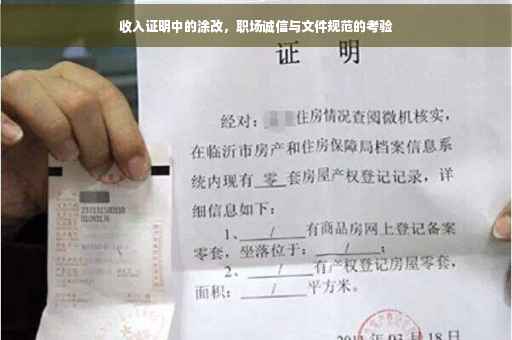 收入证明中的涂改，职场诚信与文件规范的考验
证 明
经对：住房情况查阅微机核实，
在临沂市房产和住房保障局档案信息系
统内现有 零 套房屋产权登记记录，详
细信息如下：
1、 / 有商品房网上登记备案
零套，坐落位于： / ；
2、 / 有产权登记房屋零套，
面积： / 平方米。
03 月 18 日